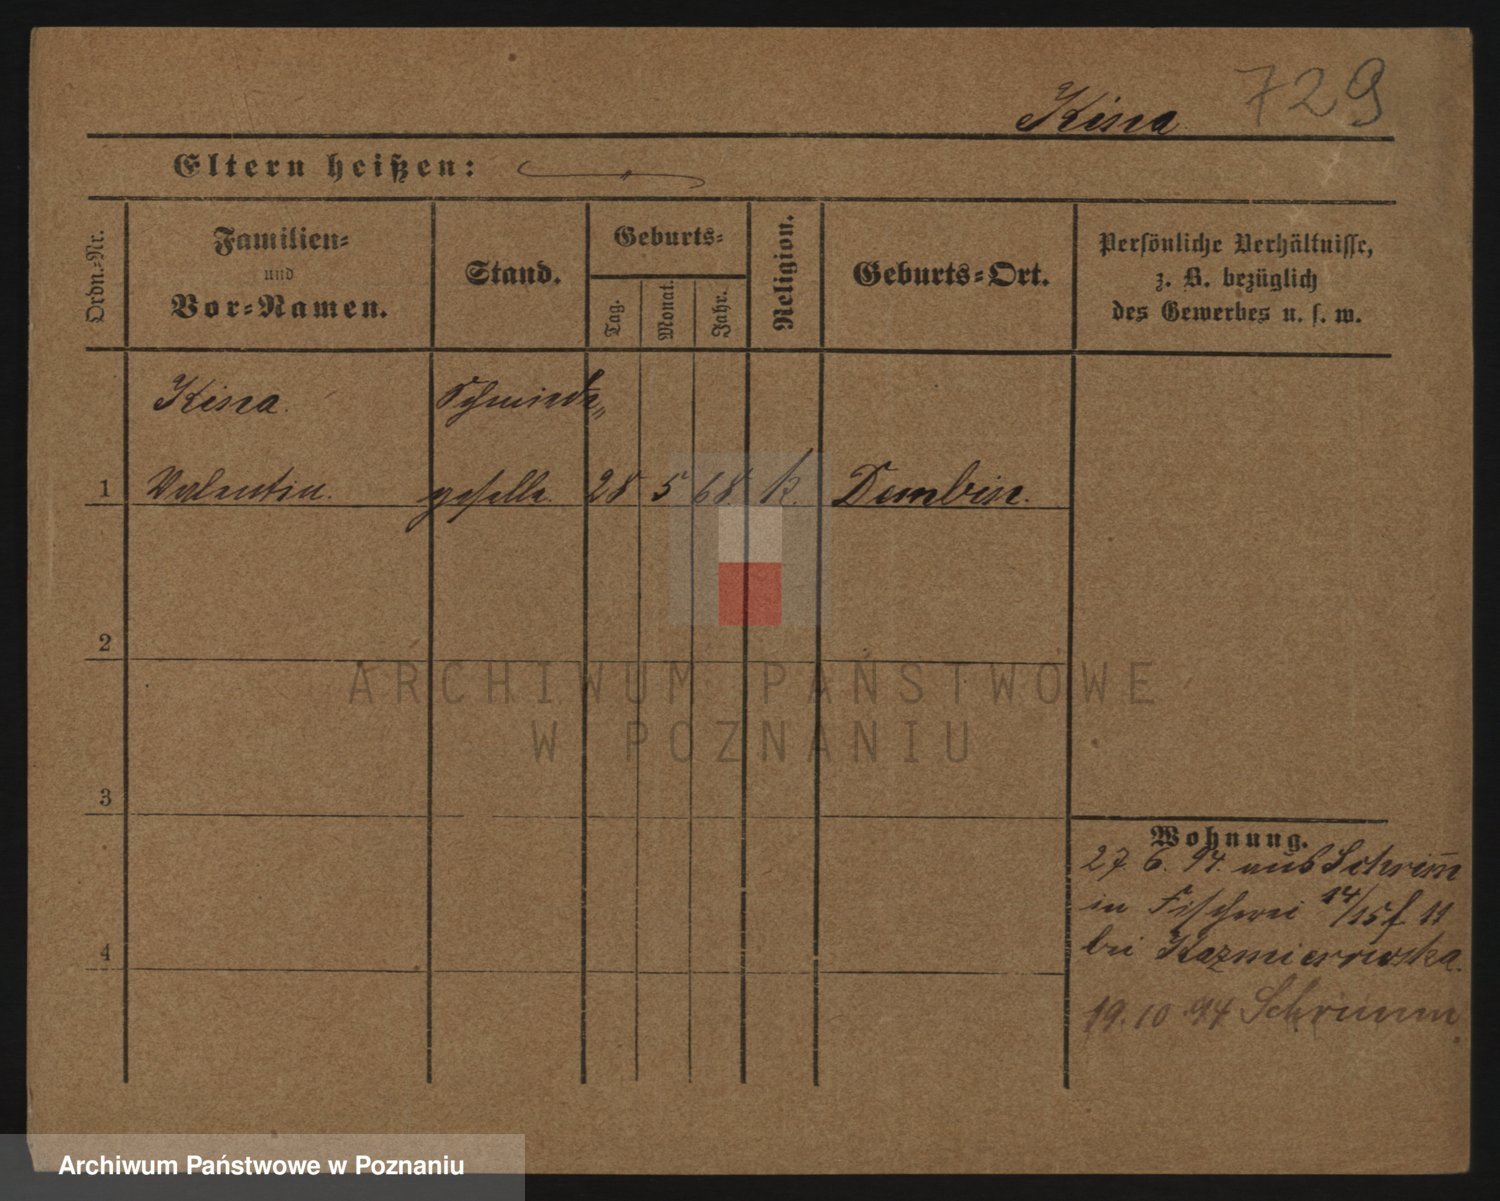 Kina 729
Eltern heißen:
Ordn.-Nr.
Familien-
und
Vor-Namen.
Stand.
Geburts-
Tag.
Monat.
Jahr.
Religion.
Geburts-Ort.
Persönliche Verhältnisse,
z. B. bezüglich
des Gewerbes u. s. w.
Kina. Schmiede-
1 Valentin. geselle. 28 5 68 k. Dembin.
2
3
4
Wohnung.
27. 6. 94. aus Schrim̅
in Fischerei 14/15 f. 11
bei Kazmierowska.
19. 10. 94 Schrimm
ARCHIWUM PAŃSTWOWE
W POZNANIU
Archiwum Państwowe w Poznaniu